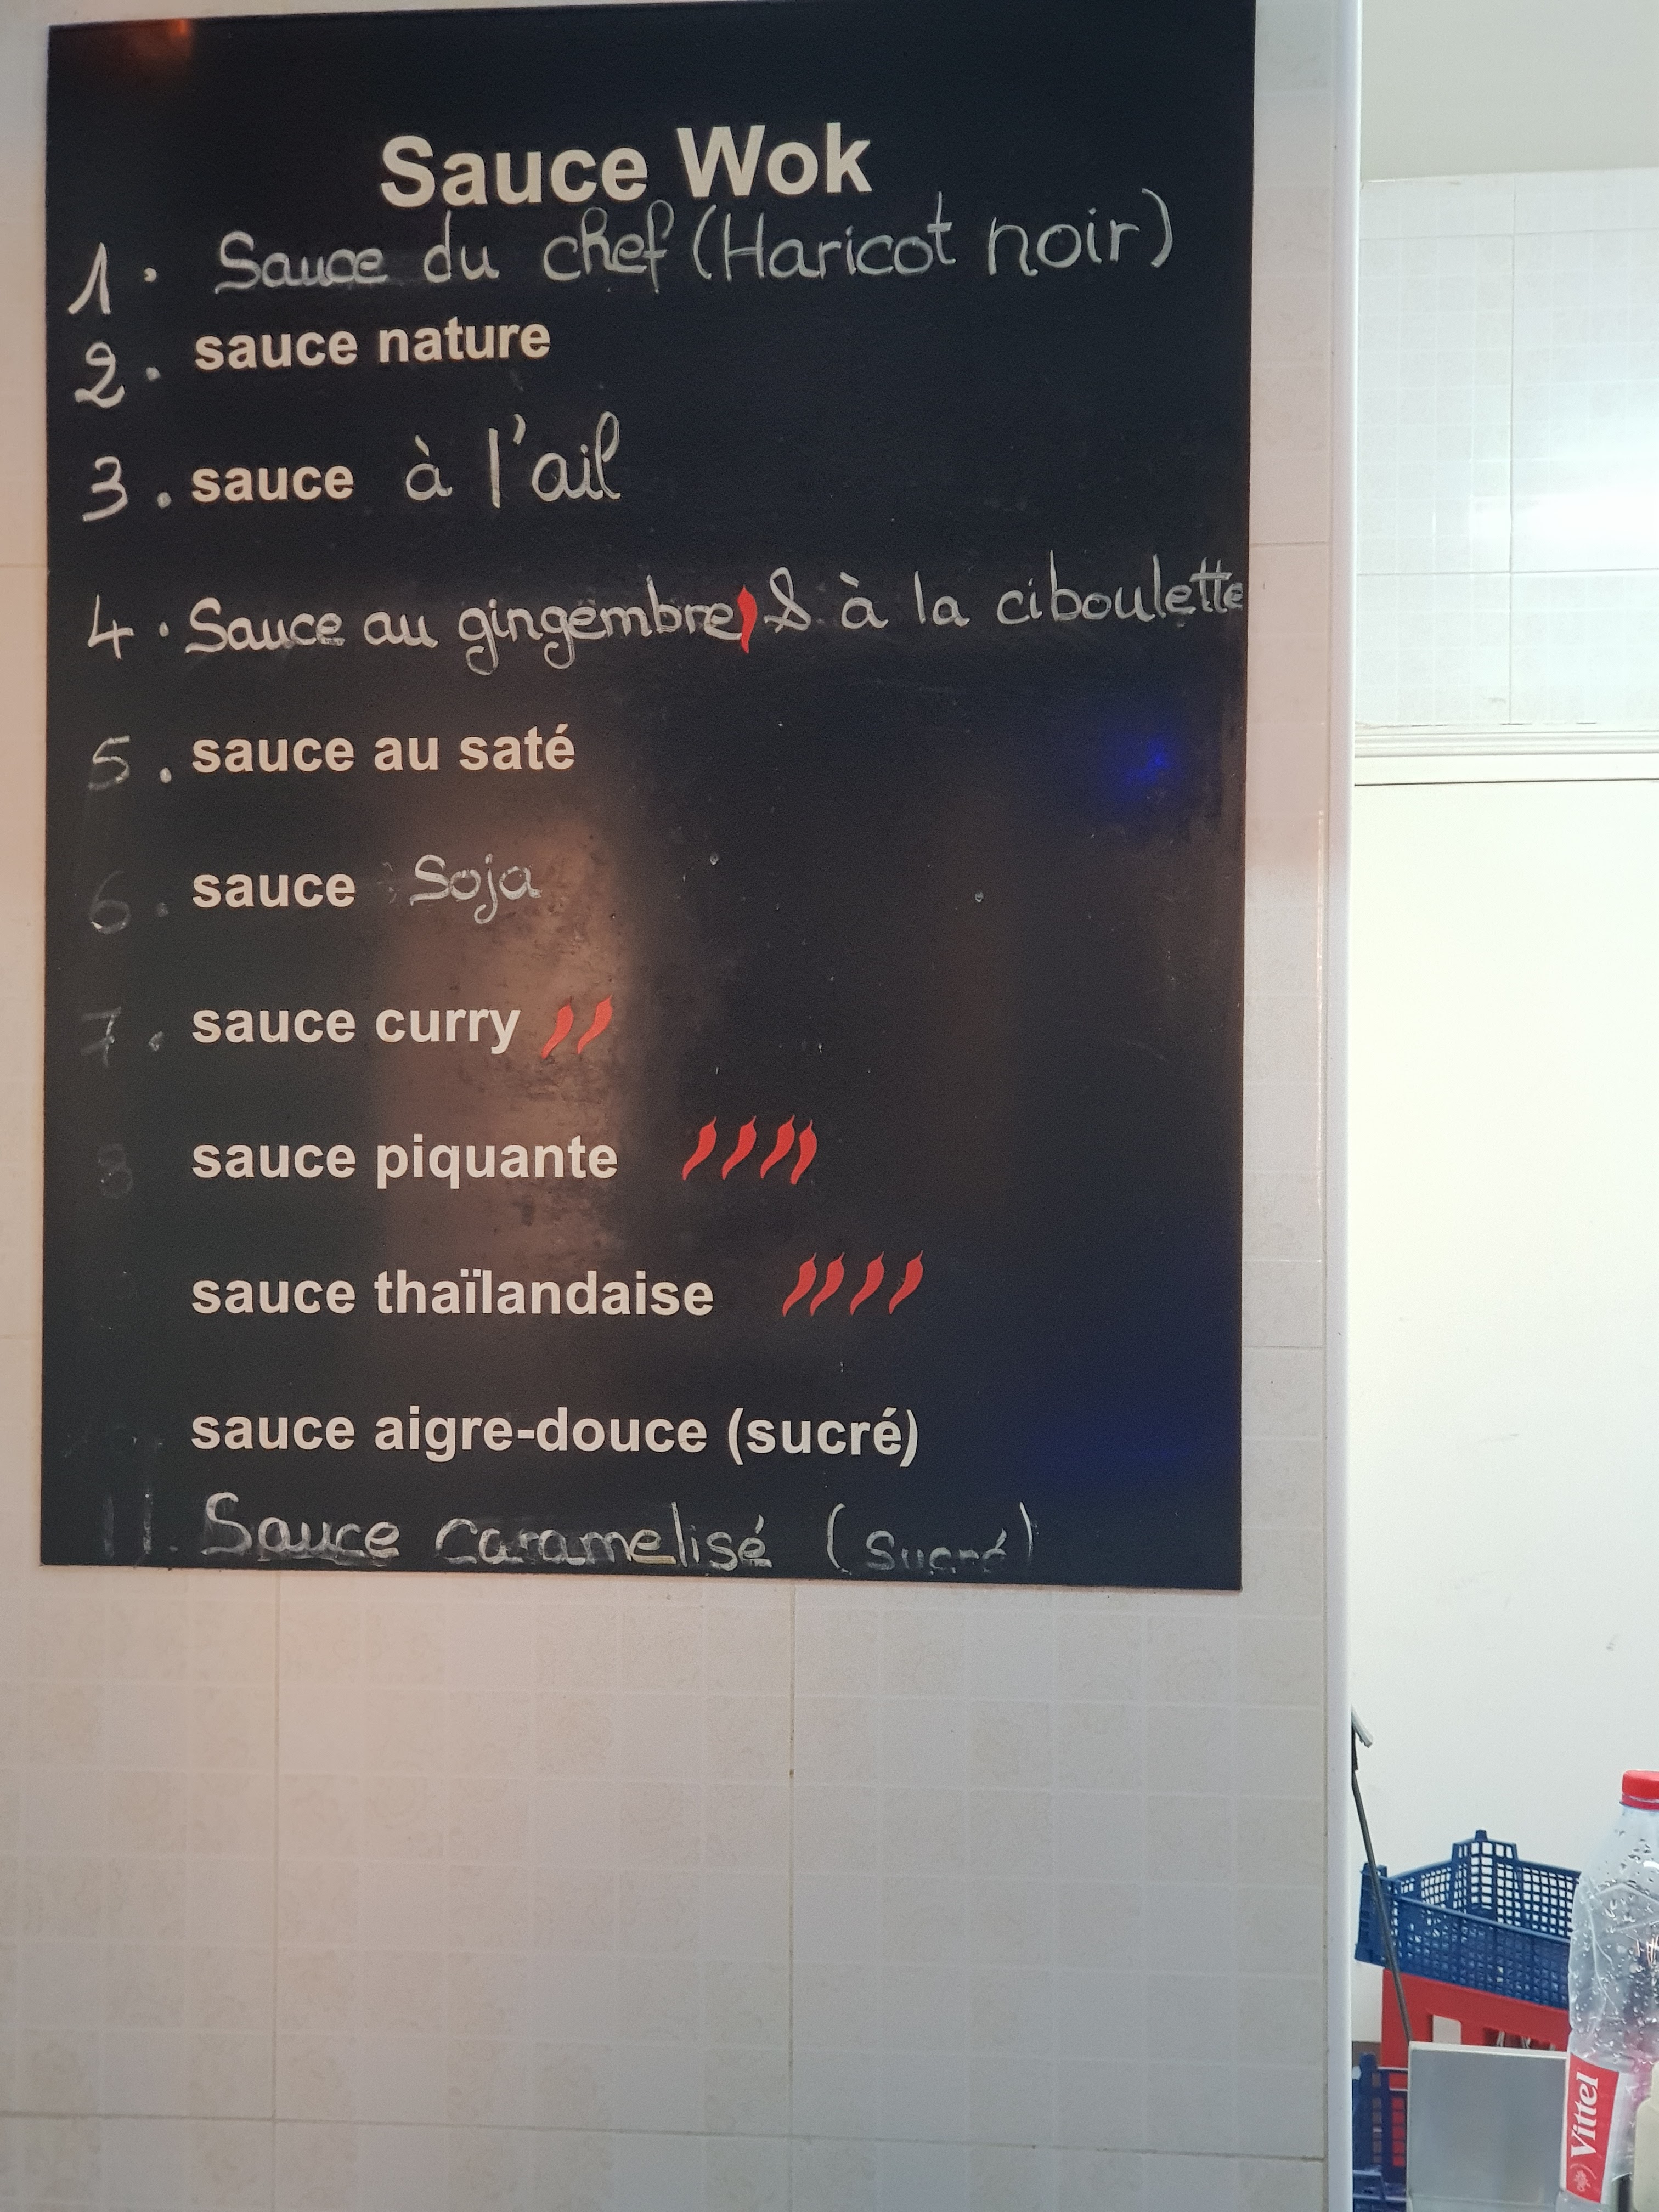 Sauce Wok
1. Sauce du chef (Haricot noir)
2. sauce nature
3. sauce à l'ail
4. Sauce au gingembre & à la ciboulette
5. sauce au saté
6. sauce Soja
7. sauce curry
8 sauce piquante
sauce thaïlandaise
sauce aigre-douce (sucré)
11. Sauce caramelisé (sucré)
Vittel